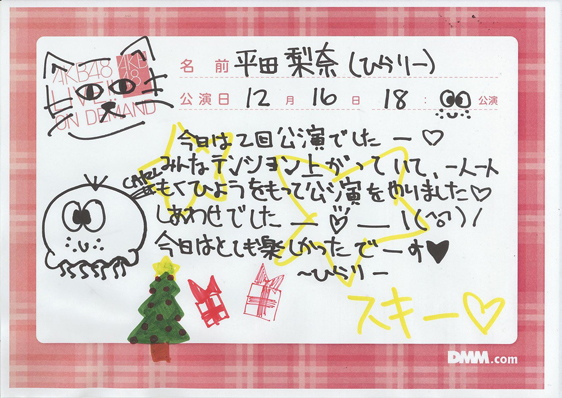 AKB48
LIVE!!
ON DEMAND
AKB
48
名前 平田 梨奈 (ひらりー)
公演日 12 月 16 日 18 : 公演
今日は2回公演でしたー♡
CAtej
みんなテンション上がっていて、一人一人
もくひょうをもって公演をやりました♡
しあわせでした ー ♡ ー !(^o^)/
今日はとても楽しかったでーす♥
〜ひらりー
スキー♡
DMM.com